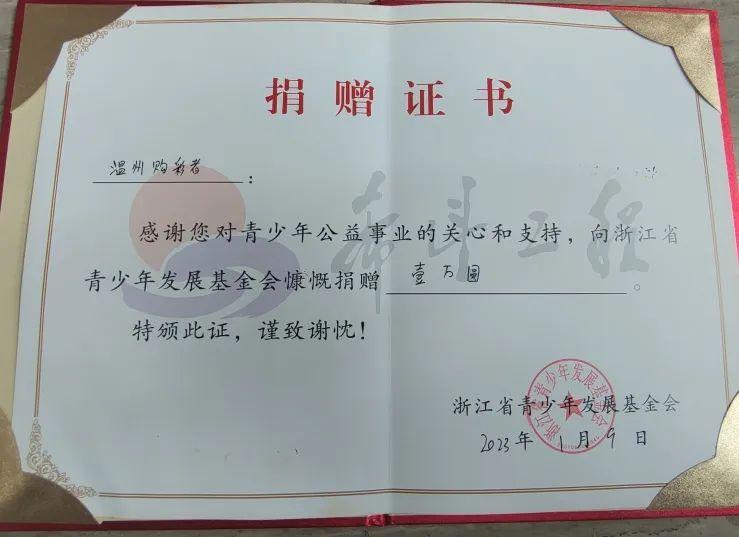 捐赠证书
温州购彩者：
希望工程
感谢您对青少年公益事业的关心和支持，向浙江省
青少年发展基金会慷慨捐赠 壹万圆。
特颁此证，谨致谢忱！
浙江省青少年发展基金会
浙江省青少年发展基金会
2023年1月9日